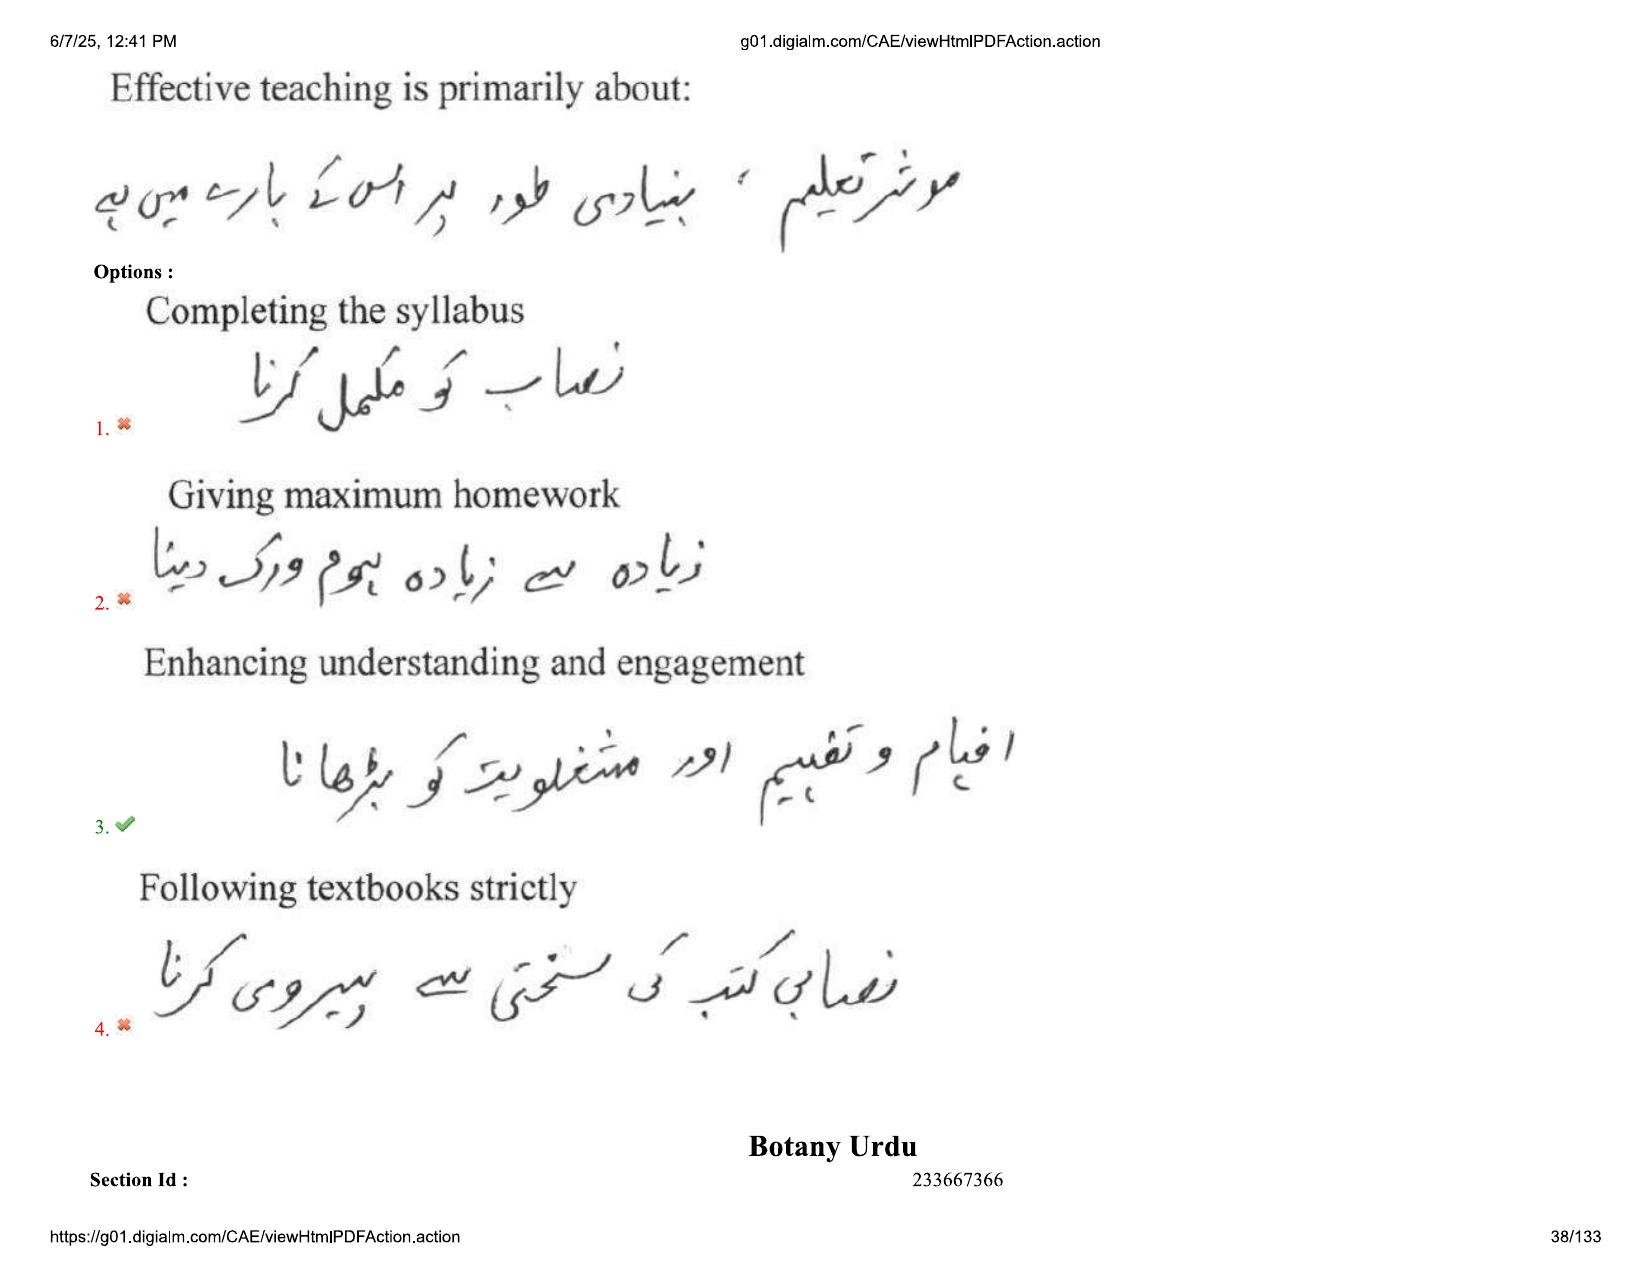 6/7/25, 12:41 PM g01.digialm.com/CAE/viewHtmlPDFAction.action
Effective teaching is primarily about:
موثر تعلیم ، بنیادی طور پر اس کے بارے میں ہے
Options :
Completing the syllabus
نصاب کو مکمل کرنا
1.
Giving maximum homework
زیادہ سے زیادہ ہوم ورک دینا
2.
Enhancing understanding and engagement
افہام و تفہیم اور مشغولیت کو بڑھانا
3.
Following textbooks strictly
نصابی کتب کی سختی سے پیروی کرنا
4.
Botany Urdu
Section Id : 233667366
https://g01.digialm.com/CAE/viewHtmlPDFAction.action 38/133